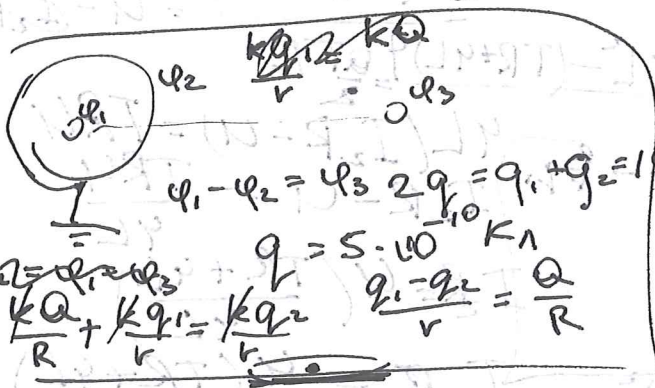 kq₁/r = kQ
φ₂
φ₁
φ₃
φ₁ - φ₂ = φ₃ 2q = q₁ + q₂ = 1
q = 5 · 10⁻¹⁰ Кл
= φ₁ = φ₃
kQ/R + kq₁/r = kq₂/r
(q₁ - q₂)/r = Q/R